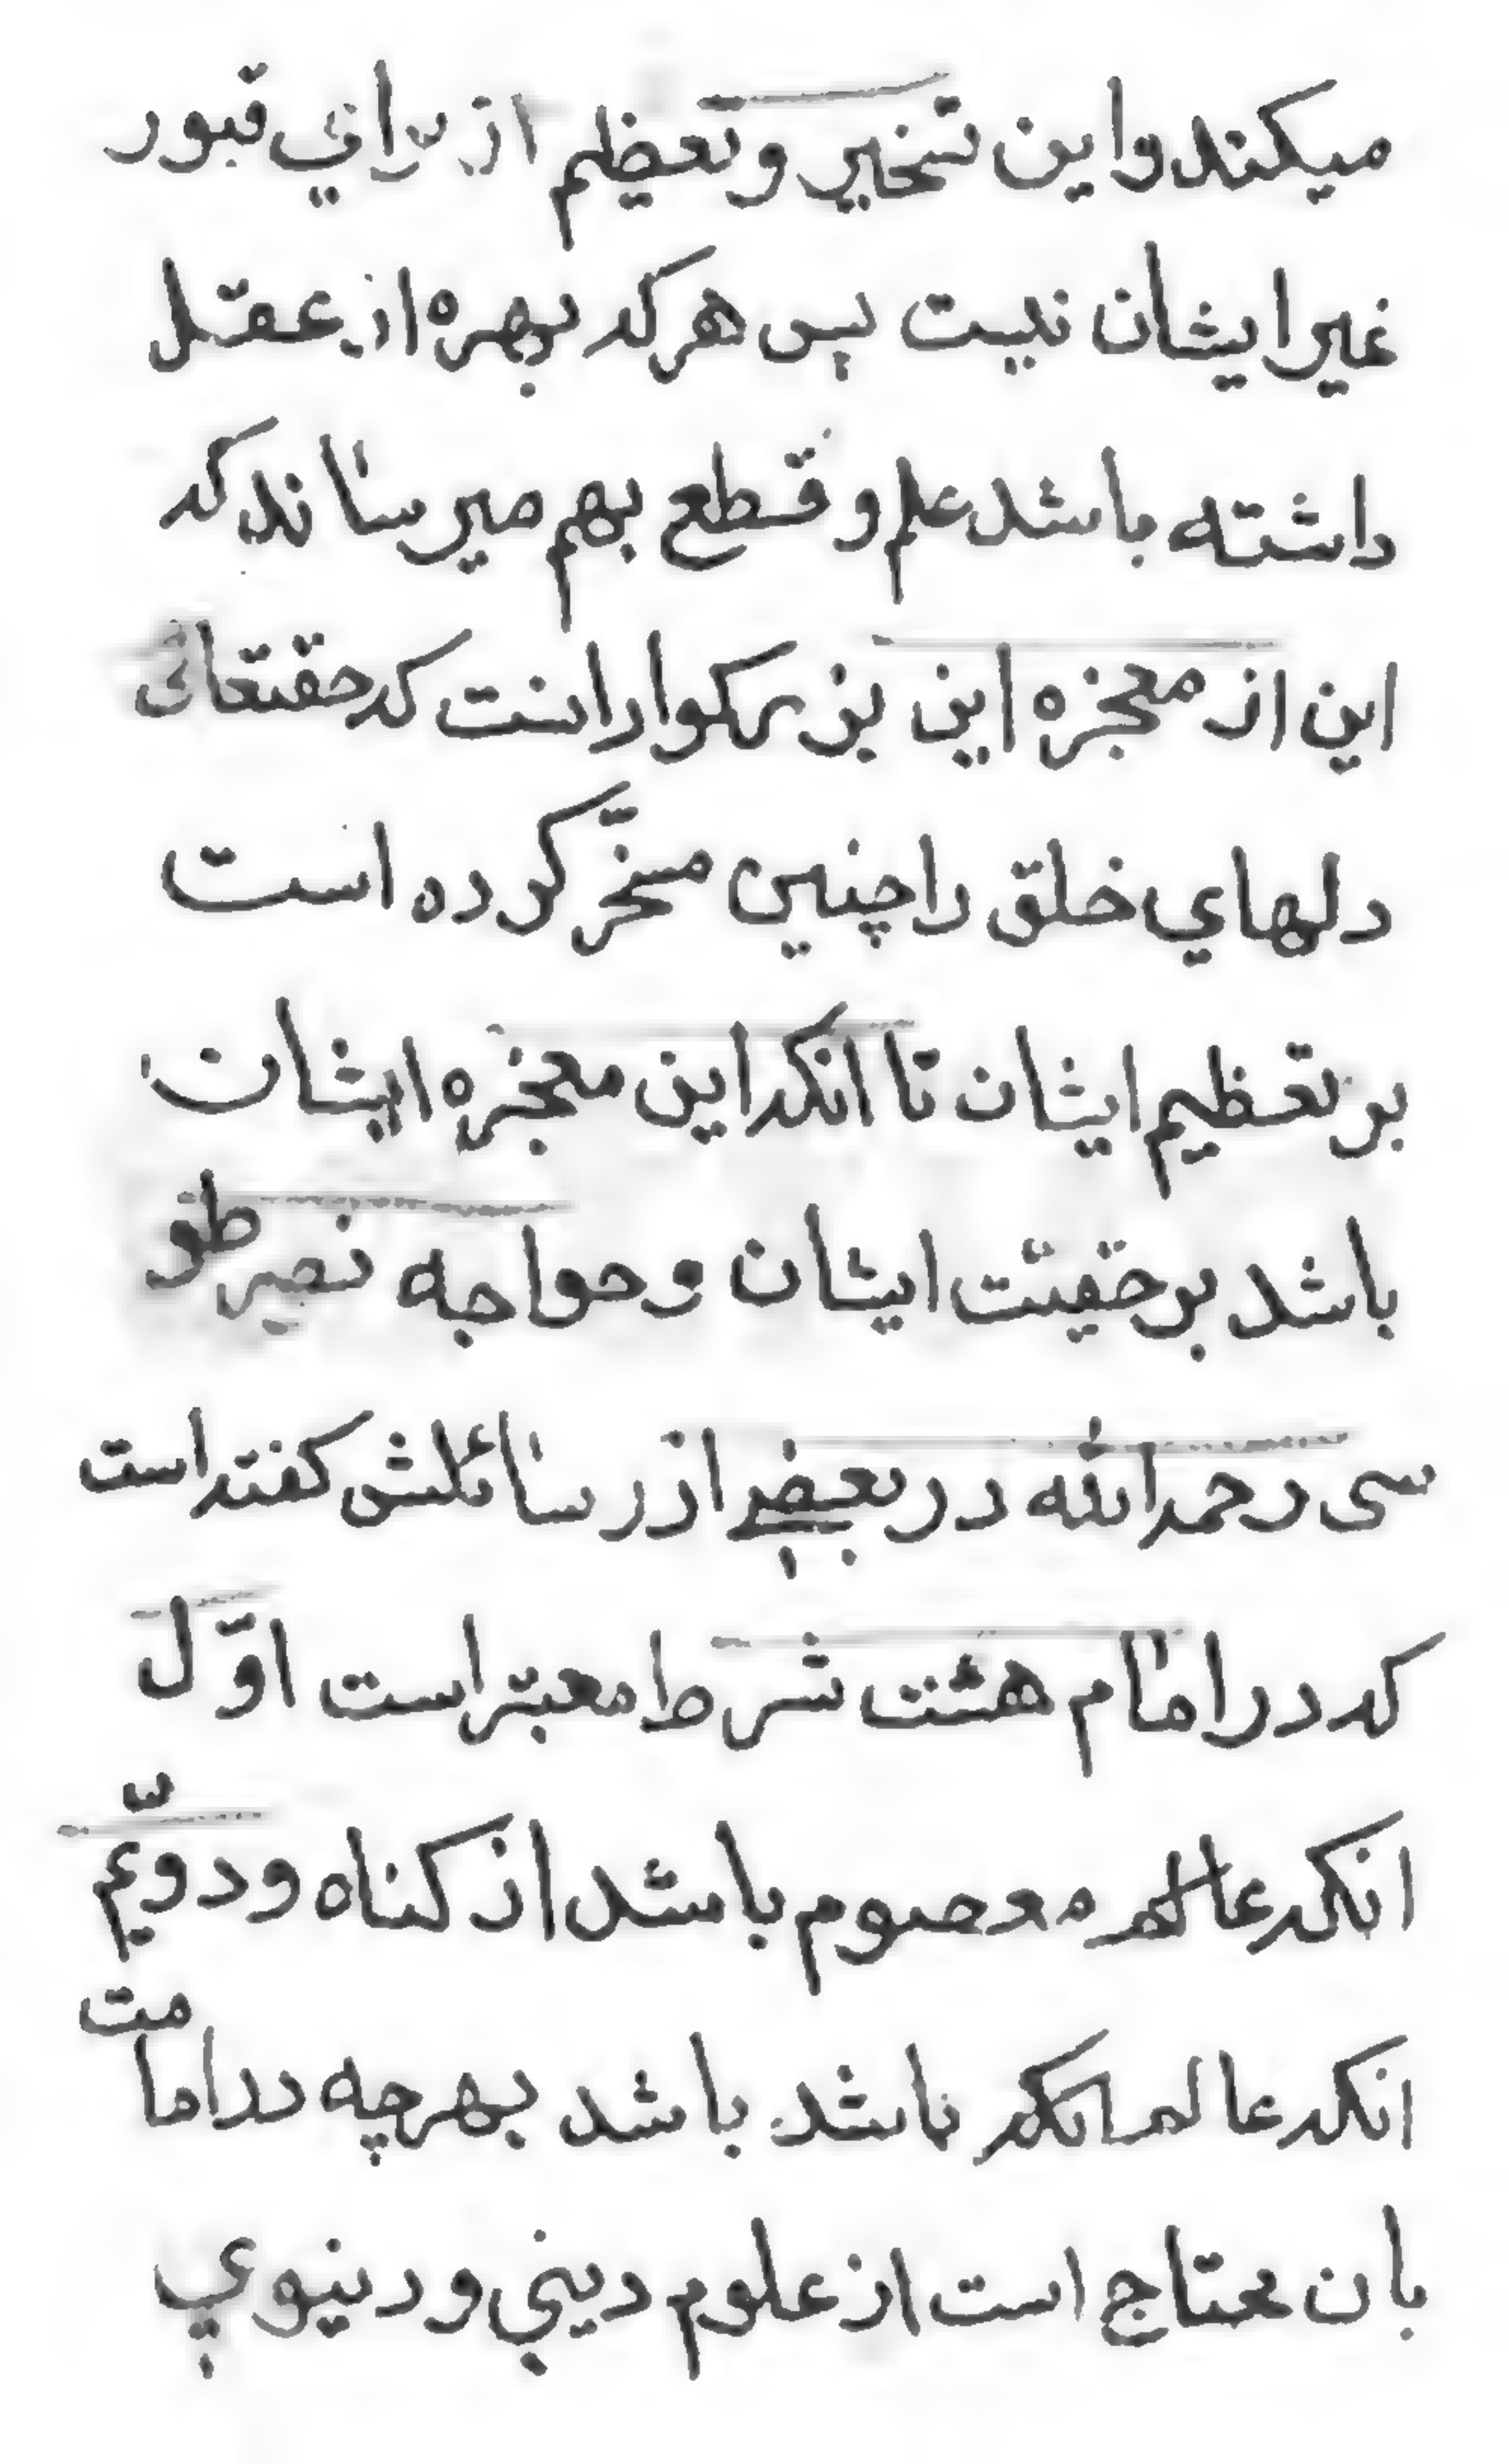 میکند و این تسخیر و تعظیم از برای قبور
غیر ایشان نیست پس هر که بهره از عقل
داشته باشد علم و قطع بهم میرساند که
این از معجزه این بزرگواران است که حقتعالی
دلهای خلق را چنین مسخّر کرده است
بر تعظیم ایشان تا آنکه این معجزه ایشان
باشد بر حقیّت ایشان و خواجه نصیر طو
سی رحمه الله در بعضی از رسائلش کفته است
که در امام هشت شرط معتبر است اوّل
انکه عالم معصوم باشد از کناه و دویّم
انکه عالم باشد باشد بهر چه در امامت
بان محتاج است از علوم دینی و دنیوی